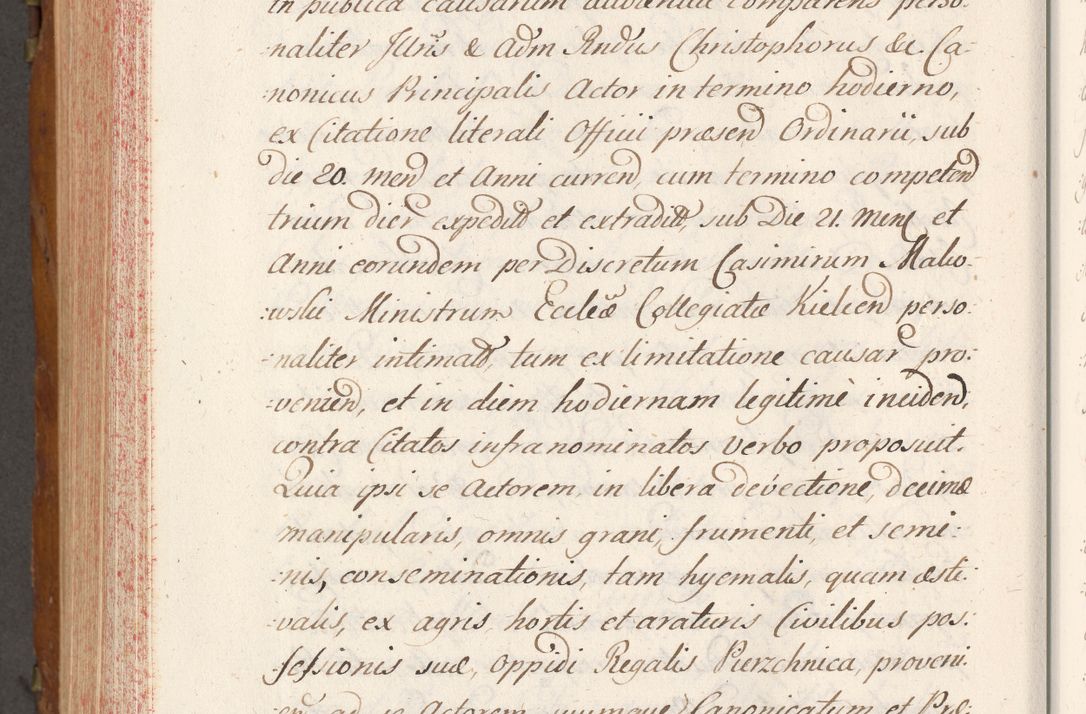 in publica causarum audientia comparens perso:
naliter Jllris & Adm Rndus Christophorus &c. Ca:
:nonicus Principalis Actor in termino hodierno,
ex Citatione literali Officii præsend Ordinarii, sub
die 20. mend et Anni currend, cum termino competend
trium dier expedit et extradit, sub Die 21. Mens et
Anni eorundem per Discretum Casimirum Mako:
:wski Ministrum Eccleæ Collegiatæ Kielcend perso:
:naliter intimat, tum ex limitatione causar pro:
:veniend, et in diem hodiernam legitimè incidend,
contra Citatos infranominatos verbo proposuit.
Quia ipsi se Actorem, in libera devectione, decimæ
manipularis, omnis grani, frumenti, et semi:
:nis, conseminationis, tam hyemalis, quam æsti:
:valis, ex agris, hortis et araturis Civilibus pos:
:sessionis suæ, Oppidi Regalis Pierzchnica, proveni:
ad se Actorem, Canonicatum et Præ: